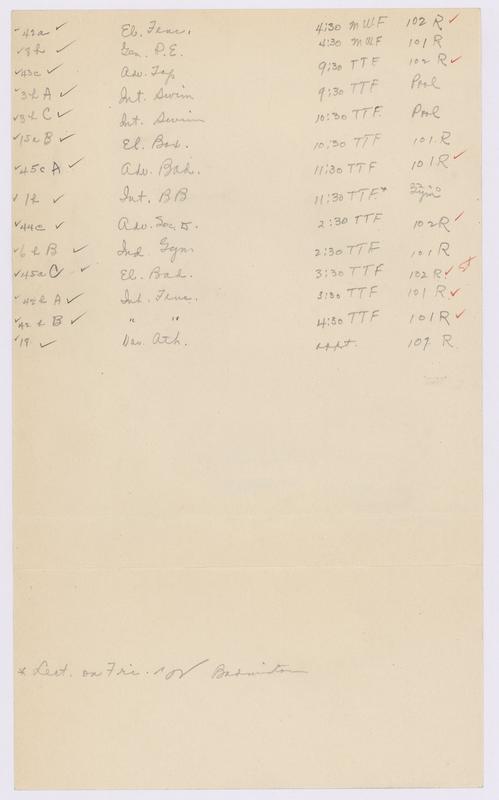 42a ✓ El. Fenc. 4:30 MWF 102 R ✓
8h ✓ Gen. P.E. 4:30 MWF 101 R
43c ✓ Adv. Tap 9:30 TTF 102 R ✓
3h A ✓ Int. Swim 9:30 TTF Pool
3h C ✓ Int. Swim 10:30 TTF Pool
15a B ✓ El. Bad. 10:30 TTF 101 R
45c A ✓ Adv. Bad. 11:30 TTF 101 R ✓
1h ✓ Int. BB 11:30 TTF* Gym
44c ✓ Adv. Soc. D. 2:30 TTF 102 R ✓
6h B ✓ Ind. Gym 2:30 TTF 101 R
45a C ✓ El. Bad. 3:30 TTF 102 R ✓
42h A ✓ Int. Fenc. 3:30 TTF 101 R ✓
42h B ✓ " " 4:30 TTF 101 R ✓
19 ✓ Ath. appt. 107 R
* Lect. on Fri. Badminton